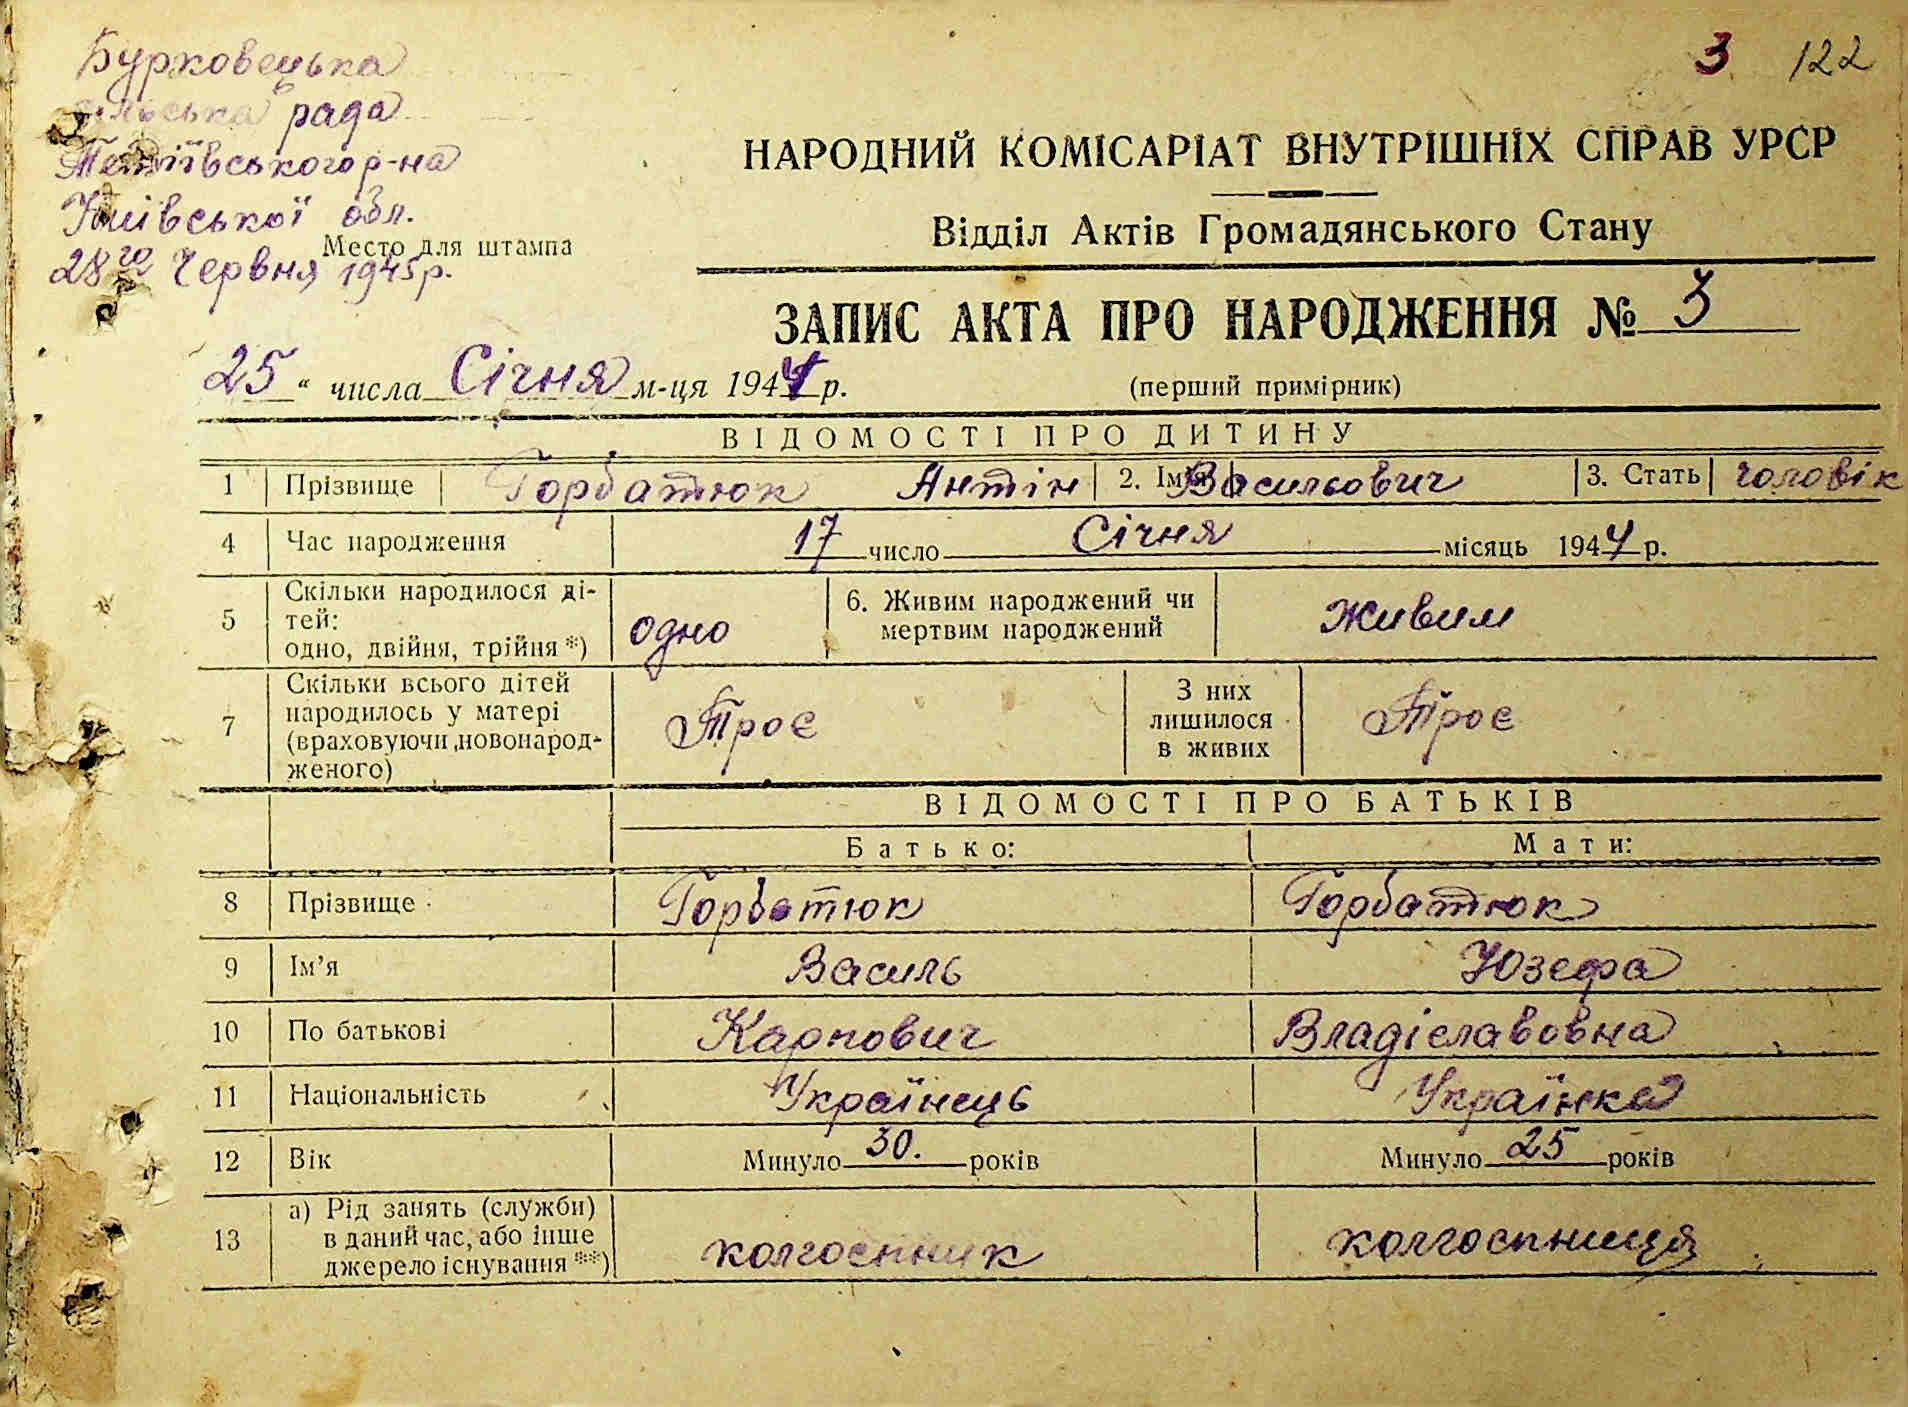 Бурковецька
сільська рада
Тетіївського р-на
Київської обл.
Место для штампа
28го Червня 1945р.
3 122
НАРОДНИЙ КОМІСАРІАТ ВНУТРІШНІХ СПРАВ УРСР
Відділ Актів Громадянського Стану
ЗАПИС АКТА ПРО НАРОДЖЕННЯ № 3
25 " числа Січня м-ця 1944 р.
(перший примірник)
ВІДОМОСТІ ПРО ДИТИНУ
1 Прізвище Горбатюк Антін 2. Ім'я Васильович 3. Стать чоловік
4 Час народження 17 число Січня місяць 1944 р.
5 Скільки народилося ді-
тей:
одно, двійня, трійня *) одно 6. Живим народжений чи
мертвим народжений живим
7 Скільки всього дітей
народилось у матері
(враховуючи новонарод-
женого) Троє З них
лишилося
в живих Троє
ВІДОМОСТІ ПРО БАТЬКІВ
Батько: Мати:
8 Прізвище Горбатюк Горбатюк
9 Ім'я Василь Юзефа
10 По батькові Карпович Владіславовна
11 Національність Українець Українка
12 Вік Минуло 30. років Минуло 25 років
13 а) Рід занять (служби)
в даний час, або інше
джерело існування **) колгоспник колгоспниця